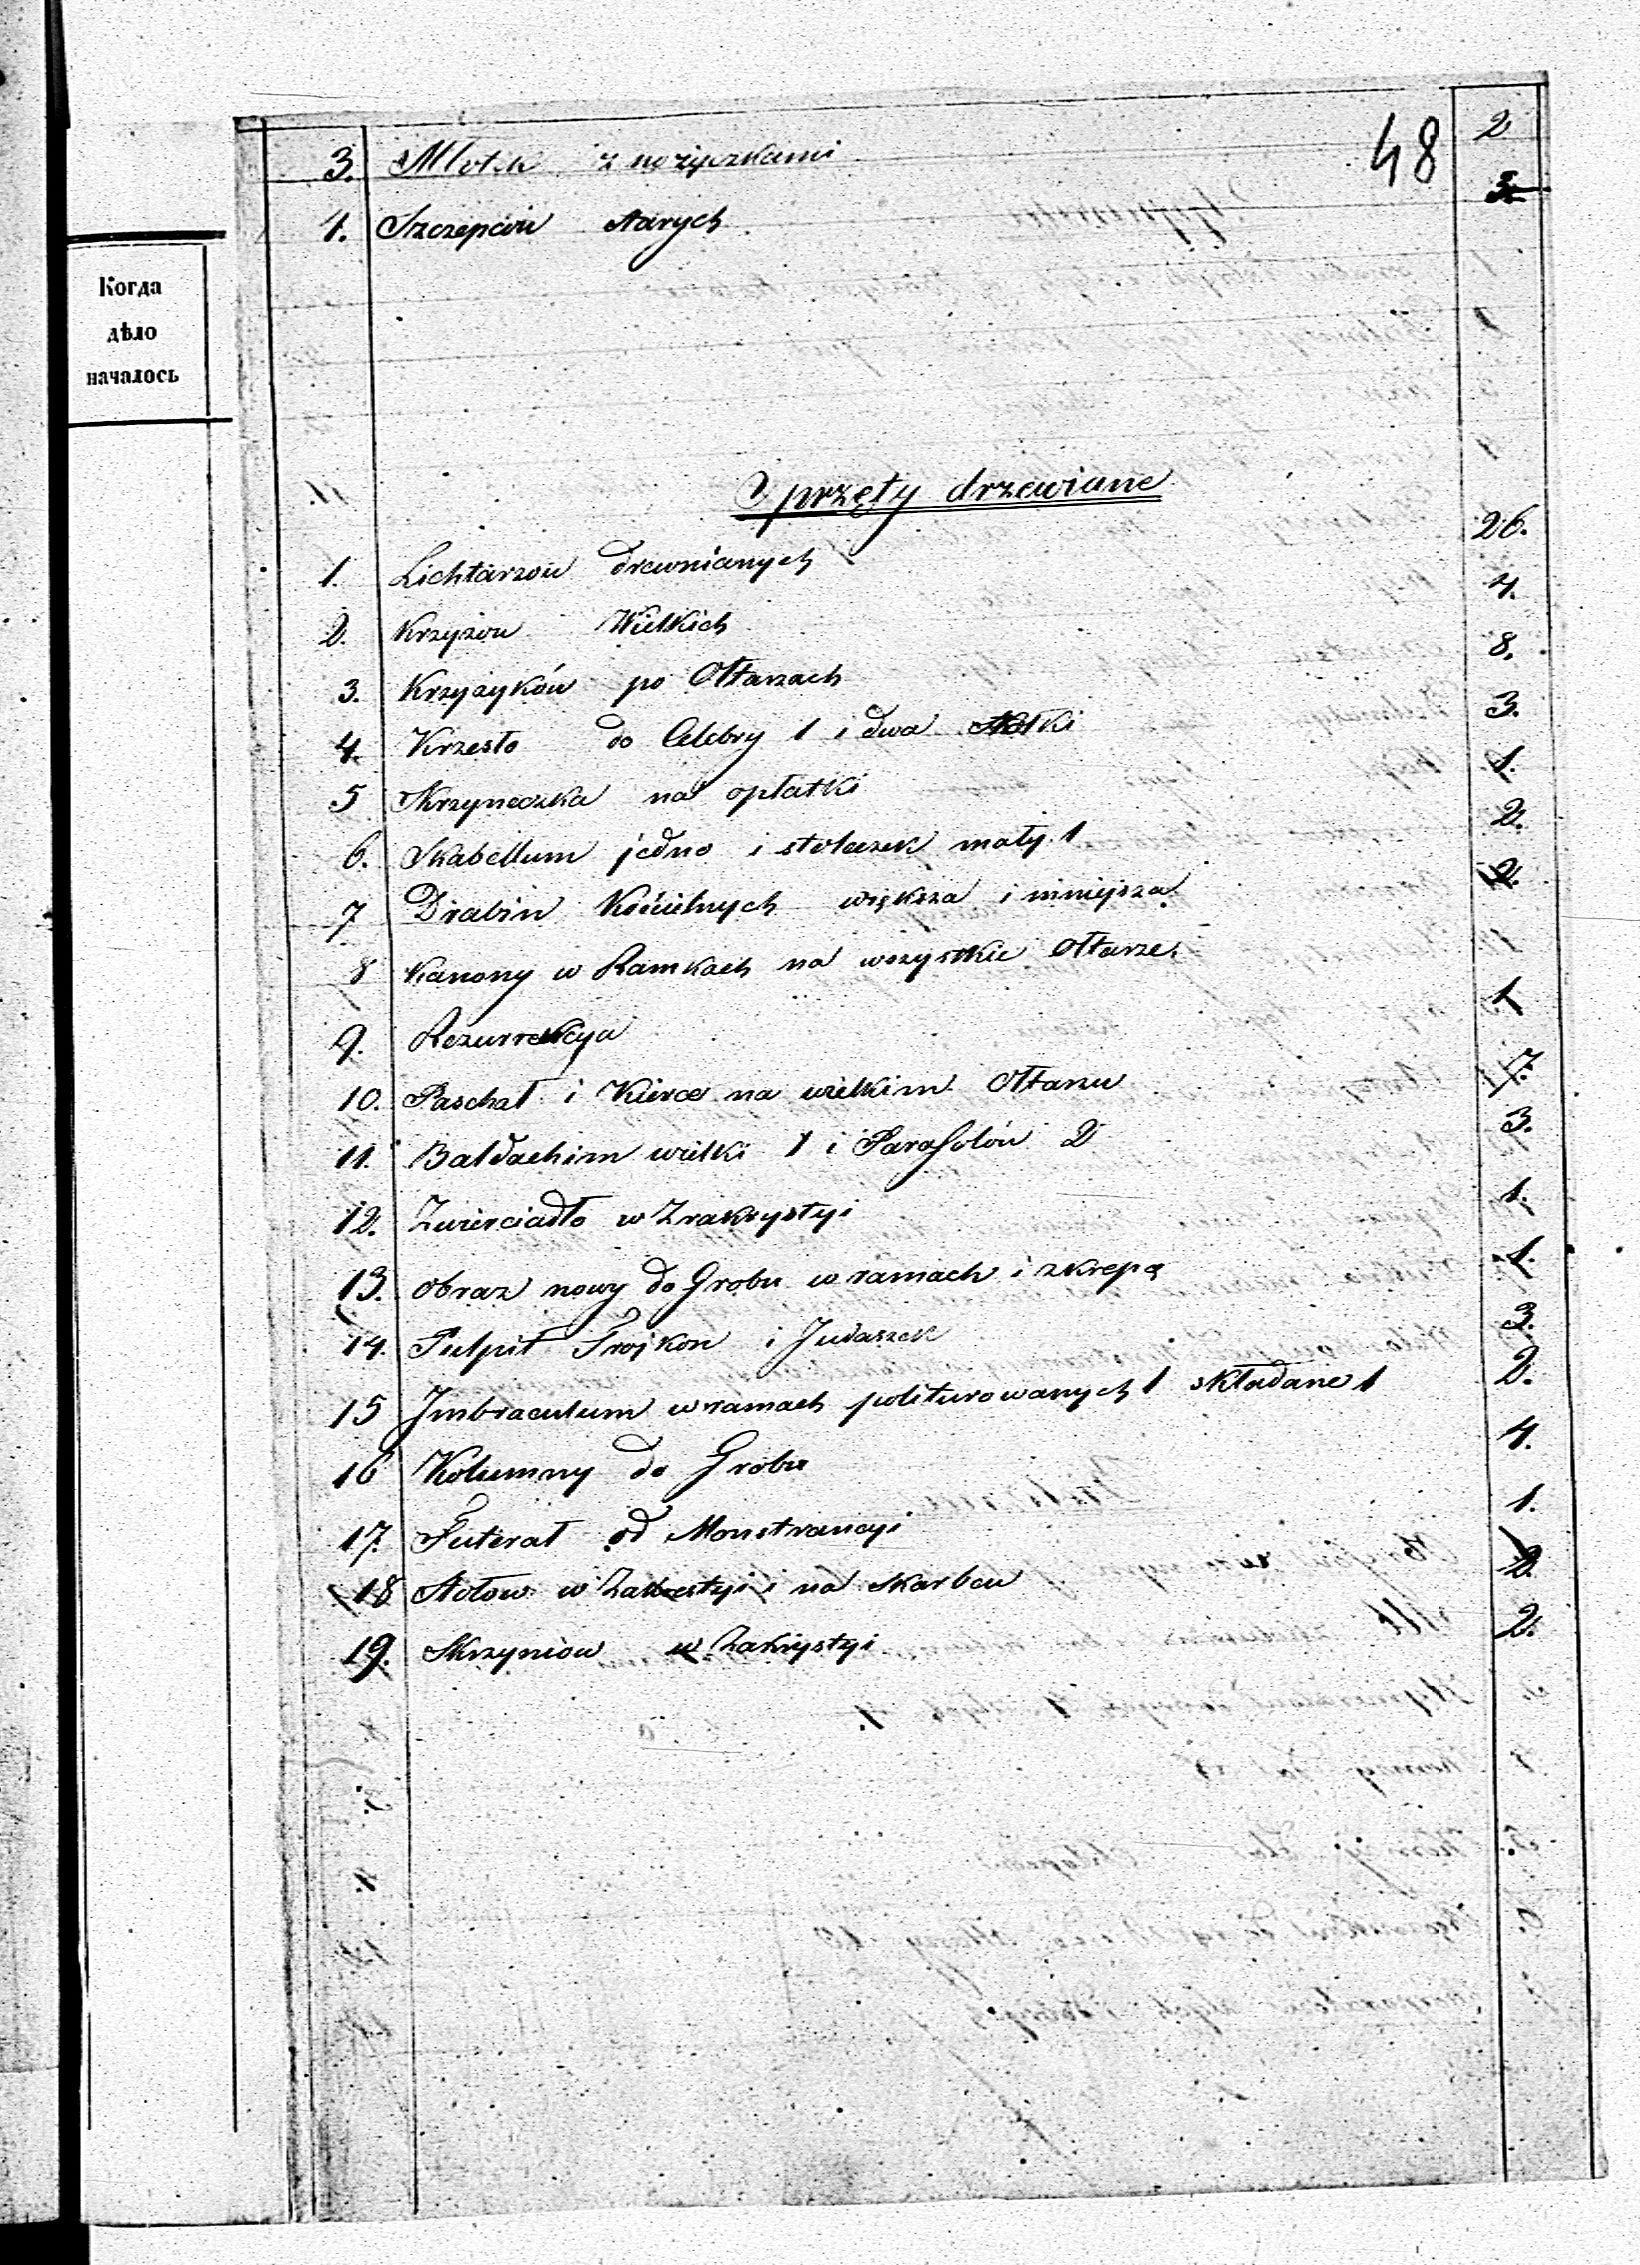 48
3. Młotek z nożyczkami 2
1. Szczepców starych 3
Когда
дѣло
началось
Sprzęty drzewiane
1. Lichtarzow drewnianych 26.
2. Krzyżow Wielkich 4.
3. Krzyżyków po Ołtarzach 8.
4. Krzesło do Celebry 1 i dwa stołki 3.
5 Skrzyneczka na opłatki 1.
6. Skabellum jedno i stołeczek mały 1 2.
7 Drabin Kościelnych większa i mniejsza 2.
8 Kanony w Ramkach na wszystkie Ołtarze.
9. Rezurrekcya 1
10. Paschał i Kierce na wielkim Ołtarzu 7.
11. Baldachim wielki 1 i Parasolów 2 3.
12. Zwierciadło w Zrakrystyi 1.
13. obraz nowy do Grobu w ramach i z krepą 1.
14. Pulpit Trojkon i Judaszek 3.
15 Imbraculum w ramach politurowanych 1 składane 1 2.
16 Kolumny do Grobu 4.
17. Futerał od Monstrancyi 1.
18 Stołow w Zakrestyi i na Skarbcu 2.
19. Skrzyniow w Zakrystyi 2.